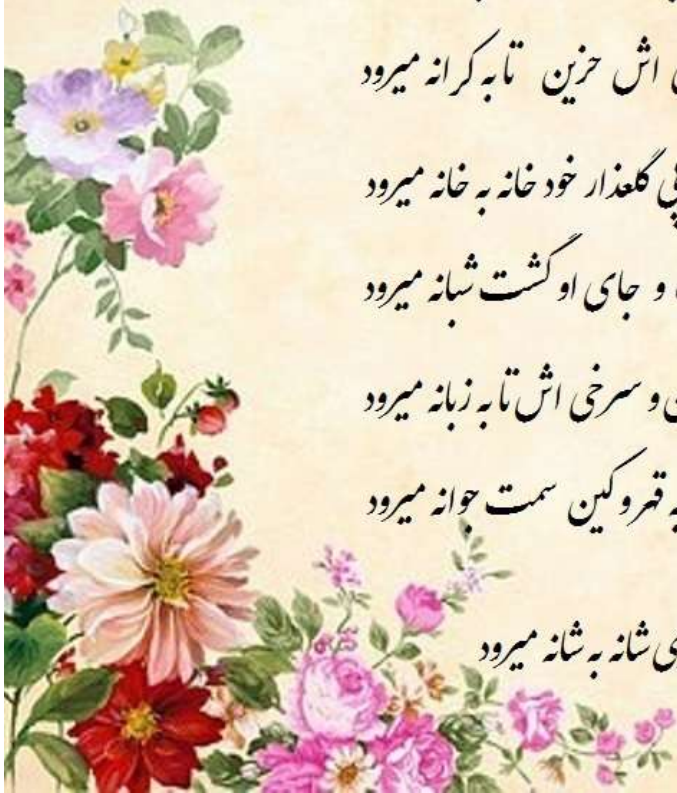 اش حزین تا به کرانه میرود
پی گلعذار خود خانه به خانه میرود
و جای او گشت شبانه میرود
و سرخی اش تا به زبانه میرود
قهر و کین سمت جوانه میرود
شانه به شانه میرود